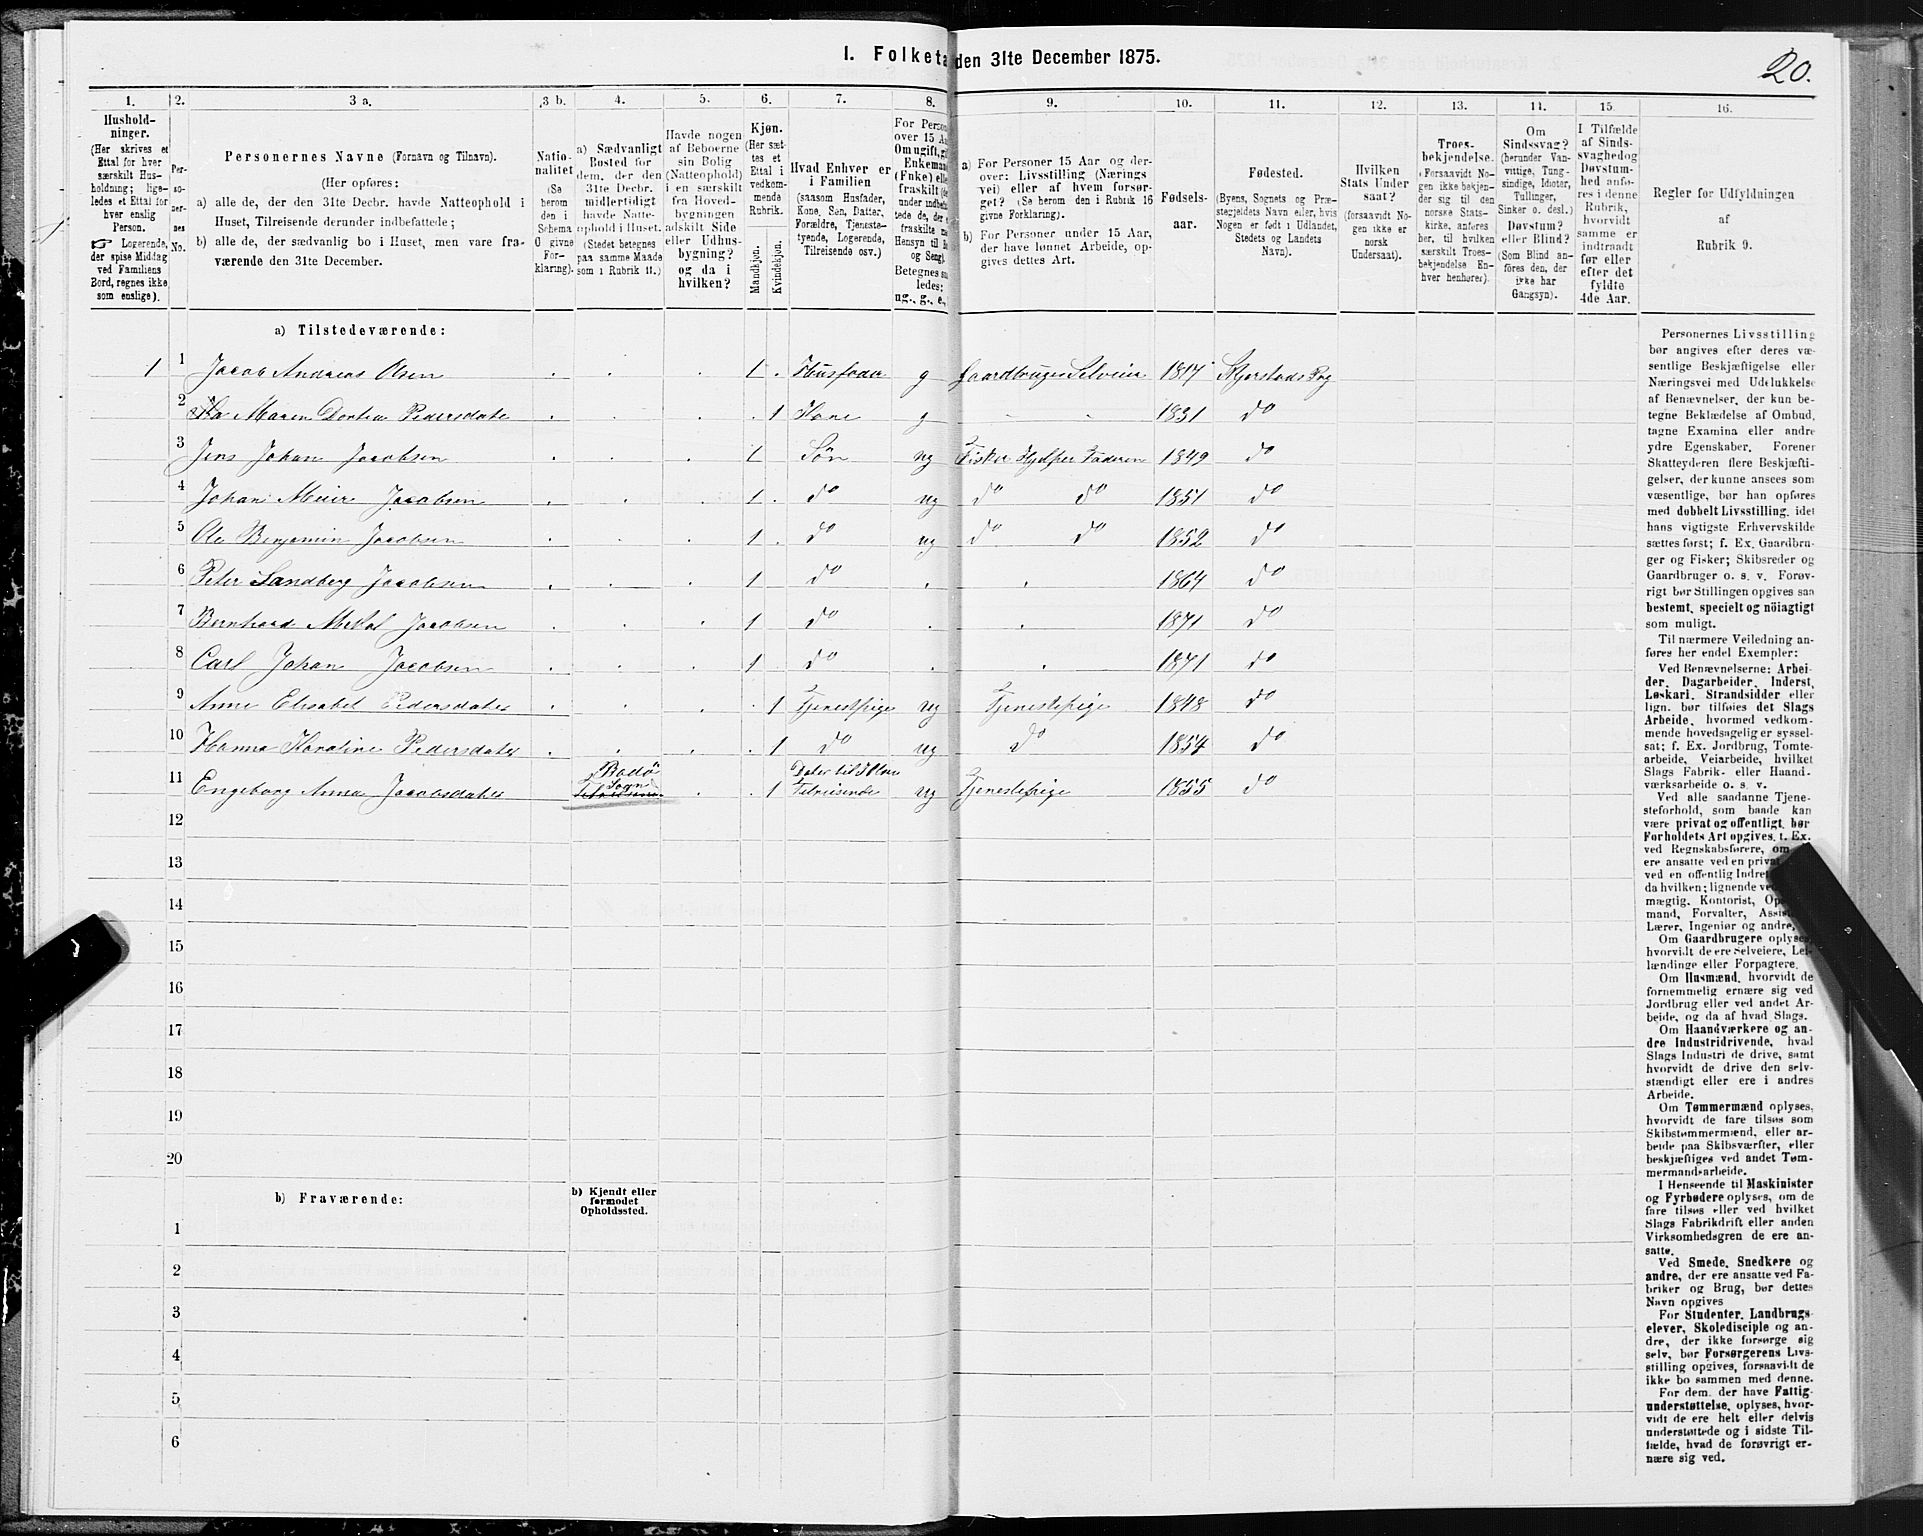 I. Folketa den 31te December 1875.
20.
1.
2.
3 a.
3 b.
4.
5.
6.
7.
8.
9.
10.
11.
12.
13.
14.
15.
16.
Hushold-
ninger.
(Her skrives et
Ettal for hver
særskilt Hus-
holdning; lige-
ledes et Ettal for
hver enslig
Person.
☞ Logerende,
der spise Middag
ved Familiens
Bord, regnes ikke
som enslige).
Per-
so-
ner-
nes
No.
Personernes Navne (Fornavn og Tilnavn).
(Her opføres:
a) alle de, der den 31te Decbr. havde Natteophold i
Huset, Tilreisende derunder indbefattede;
b) alle de, der sædvanlig bo i Huset, men vare fra-
værende den 31te December.
Natio-
nalitet
(Se
herom
den i
Schema
O givne
For-
klaring).
a) Sædvanligt
Bosted for
dem, der den
31te Decbr.
midlertidigt
havde Natte-
ophold i Huset.
(Stedet betegnes
paa samme Maade
som i Rubrik 11.)
Havde nogen
af Beboerne
sin Bolig
(Natteophold)
i en særskilt
fra Hoved-
bygningen
adskilt Side
eller Udhus-
bygning?
og da i
hvilken?
Kjøn.
(Her sæt-
tes et
Ettal i
vedkom-
mende
Rubrik.
Mandkjøn.
Kvindekjøn.
Hvad Enhver er
i Familien
(saasom Husfader,
Kone, Søn, Datter,
Forældre, Tjeneste-
tyende, Logerende,
Tilreisende osv.)
For Person
over 15 Aa
Om ugift, gi
Enkeman
(Enke) elle
fraskilt (de
under indbefa
tede de, der e
fraskilte m
Hensyn til B
og Seng).
Betegnes saa
ledes:
ug., g., e.,
a) For Personer 15 Aar og der-
over: Livsstilling (Nærings
vei) eller af hvem forsør-
get? (Se herom den i Rubrik 16
givne Forklaring).
b) For Personer under 15 Aar,
der have lønnet Arbeide, op-
gives dettes Art.
Fødsels-
aar.
Fødested.
(Byens, Sognets og Præ-
stegjeldets Navn eller, hvis
Nogen er født i Udlandet,
Stedets og Landets
Navn).
Hvilken
Stats Under
saat?
(forsaavidt No-
gen ikke er
norsk
Undersaat).
Troes-
bekjendelse.
(Forsaavidt No-
gen ikke bekjen-
der sig til den
norske Stats-
kirke, anføres
her, til hvilken
særskilt Troes-
bekjendelse En-
hver henhører).
Om
Sindssvag?
(herunder Van-
vittige, Tung-
sindige, Idioter,
Tullinger,
Sinker o. desl.)
Døvstum?
eller Blind?
(Som Blind an-
føres den, der
ikke har
Gangsyn).
I Tilfælde
af Sinds-
svaghed og
Døvstum-
hed anfø-
res i denne
Rubrik,
hvorvidt
samme er
indtraadt
før eller
efter det
fyldte
4de Aar.
Regler for Udfyldningen
af
Rubrik 9.
a) Tilstedeværende:
1 1 Jacob Andreas Olsen 1 Husfader g Gaardbruger Selveier 1817 Skjerstad Prg
2 Maren Dortea Pedersdater 1 Kone g 1831 do
3 Jens Johan Jacobsen 1 Søn ug Fisker Hjelper Faderen 1849 do
4 Johan Meier Jacobsen 1 do ug do do 1851 do
5 Ole Benjamin Jacobsen 1 do ug do do 1852 do
6 Peter Sandberg Jacobsen 1 do 1864 do
7 Bernhard Mikal Jacobsen 1 do 1871 do
8 Carl Johan Jacobsen 1 do 1871 do
9 Anne Elisabet Pedersdater 1 Tjenestpige ug Tjenestepige 1848 do
10 Hanna Karoline Pedersdater 1 do ug do 1854 do
Bodø Dater til
11 Engeborg Anna Jacobsdater Sogn 1 Tilreisende ug Tjenestepige 1855 do
12
13
14
15
16
17
18
19
20
b) Fraværende:
b) Kjendt eller
formodet
Opholdssted.
1
2
3
4
5
6
Personernes Livsstilling
bør angives efter deres væ-
sentlige Beskjæftigelse eller
Næringsvei med Udelukkelse
af Benævnelser, der kun be-
tegne Beklædelse af Ombud,
tagne Examina eller andre
ydre Egenskaber. Forener
Skatteyderen flere Beskjæfti-
gelser, der kunne ansees som
væsentlige, bør han opføres
med dobbelt Livsstilling, idet
hans vigtigste Erhvervskilde
sættes først; f. Ex. Gaardbru-
ger og Fisker; Skibsreder og
Gaardbruger o. s. v. Forøv-
rigt bør Stillingen opgives saa
bestemt, specielt og nöiagtigt
som muligt.
Til nærmere Veiledning an-
føres her endel Exempler:
Ved Benævnelserne: Arbei-
der, Dagarbeider, Inderst,
Løskari, Strandsidder eller
lign. bør tilføies det Slags
Arbeide, hvormed vedkom-
mende hovedsagelig er syssel-
sat; f. Ex. Jordbrug, Tomte-
arbeide, Veiarbeide, hvilket
Slags Fabrik- eller Haand-
værksarbeide o. s. v.
Ved alle saadanne Tjene-
steforhold, som baade kan
være privat og offentligt, bør
Forholdets Art opgives, t. Ex.
ved Regnskabsførere, om
ere ansatte ved en privat
ved en offentlig Indret
da hvilken; lignende ved
mægtig, Kontorist, Op
mand, Forvalter, Assis
Lærer, Ingeniør og andre,
Om Gaardbrugere oplyses,
hvorvidt de ere Selveiere, Lei-
lændinge eller Forpagtere.
Om Husmænd, hvorvidt de
fornemmelig ernære sig ved
Jordbrug eller ved andet Ar-
beide, og da af hvad Slags.
Om Haandværkere og an-
dre Industridrivende, hvad
Slags Industri de drive, samt
hvorvidt de drive den selv-
stændigt eller ere i andres
Arbeide.
Om Tømmermænd oplyses,
hvorvidt de fare tilsøs som
Skibstømmermænd, eller ar-
beide paa Skibsværfter, eller
beskjæftiges ved andet Tøm-
mermandsarbeide.
I Henseende til Maskinister
og Fyrbødere oplyses, om de
fare tilsøs eller ved hvilket
Slags Fabrikdrift eller anden
Virksomhedsgren de ere an-
satte.
Ved Smede, Snedkere og
andre, der ere ansatte ved Fa-
briker og Brug, bør dettes
Navn opgives
For Studenter, Landbrugs-
elever, Skoledisciple og an-
dre, der ikke forsørge sig
selv, bør Forsørgerens Livs-
stilling opgives, forsaavidt de
ikke bo sammen med denne.
For dem, der have Fattig-
understøttelse, oplyses, hvor-
vidt de ere helt eller delvis
understøttede og i sidste Til-
fælde, hvad de forøvrigt er-
nære sig ved.